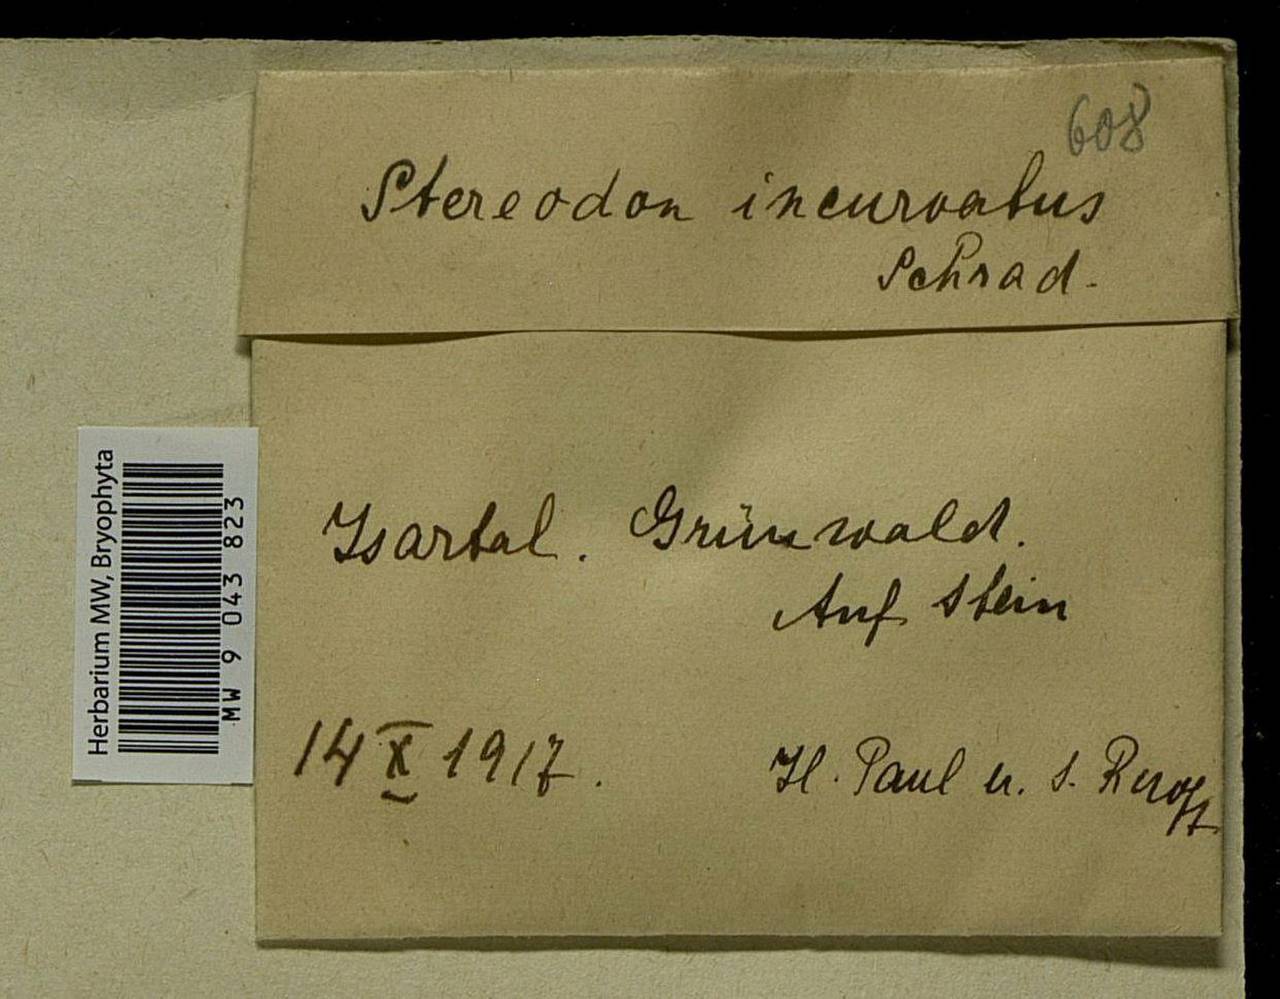 608
Stereodon incurvatus
Schrad.
Isartal. Grünwald.
Auf Stein
14 X 1917.
H. Paul u. S.
Herbarium MW, Bryophyta
MW 9 043 823